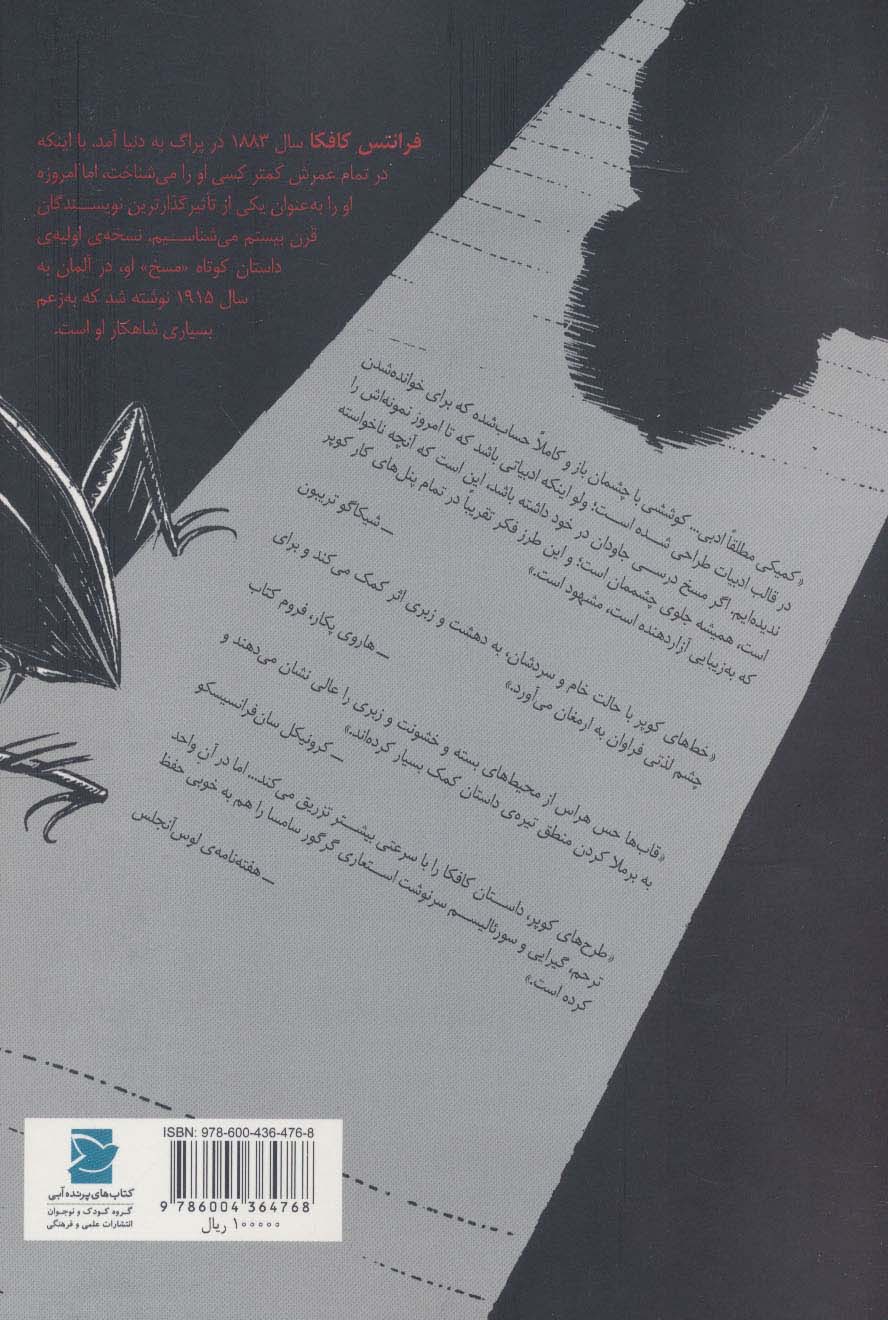 فرانتس کافکا سال ۱۸۸۳ در پراگ به دنیا آمد. با اینکه
در تمام عمرش کمتر کسی او را می‌شناخت، اما امروزه
او را به‌عنوان یکی از تأثیرگذارترین نویسندگان
قرن بیستم می‌شناسیم. نسخه‌ی اولیه‌ی
داستان کوتاه «مسخ» او، در آلمان به
سال ۱۹۱۵ نوشته شد که به‌زعم
بسیاری شاهکار او است.
«کمیکی مطلقاً ادبی... کوششی با چشمان باز و کاملاً حساب‌شده که برای خوانده‌شدن
در قالب ادبیات طراحی شده است؛ ولو اینکه ادبیاتی باشد که تا امروز نمونه‌اش را
ندیده‌ایم. اگر مسخ درسی جاودان در خود داشته باشد، این است که آنچه ناخواسته
است، همیشه جلوی چشممان است؛ و این طرز فکر تقریباً در تمام پنل‌های کار کوپر
که به‌زیبایی آزاردهنده است، مشهود است.»
ــ شیکاگو تریبون
«خط‌های کوپر با حالت خام و سردشان، به دهشت و زبری اثر کمک می‌کند و برای
چشم لذتی فراوان به ارمغان می‌آورد.»
ــ هاروی پکار، فروم کتاب
«قاب‌ها حس هراس از محیط‌های بسته و خشونت و زبری را عالی نشان می‌دهند و
به برملا کردن منطق تیره‌ی داستان کمک بسیار کرده‌اند.»
ــ کرونیکل سان‌فرانسیسکو
«طرح‌های کوپر، داستان کافکا را با سرعتی بیشتر تزریق می‌کند... اما در آن واحد
ترحم، گیرایی و سورئالیسم سرنوشت استعاری گرگور سامسا را هم به خوبی حفظ
کرده است.»
ــ هفته‌نامه‌ی لوس‌آنجلس
ISBN: 978-600-436-476-8
9 786004 364768
۱۰۰۰۰۰ ریال
کتاب‌های پرنده آبی
گروه کودک و نوجوان
انتشارات علمی و فرهنگی